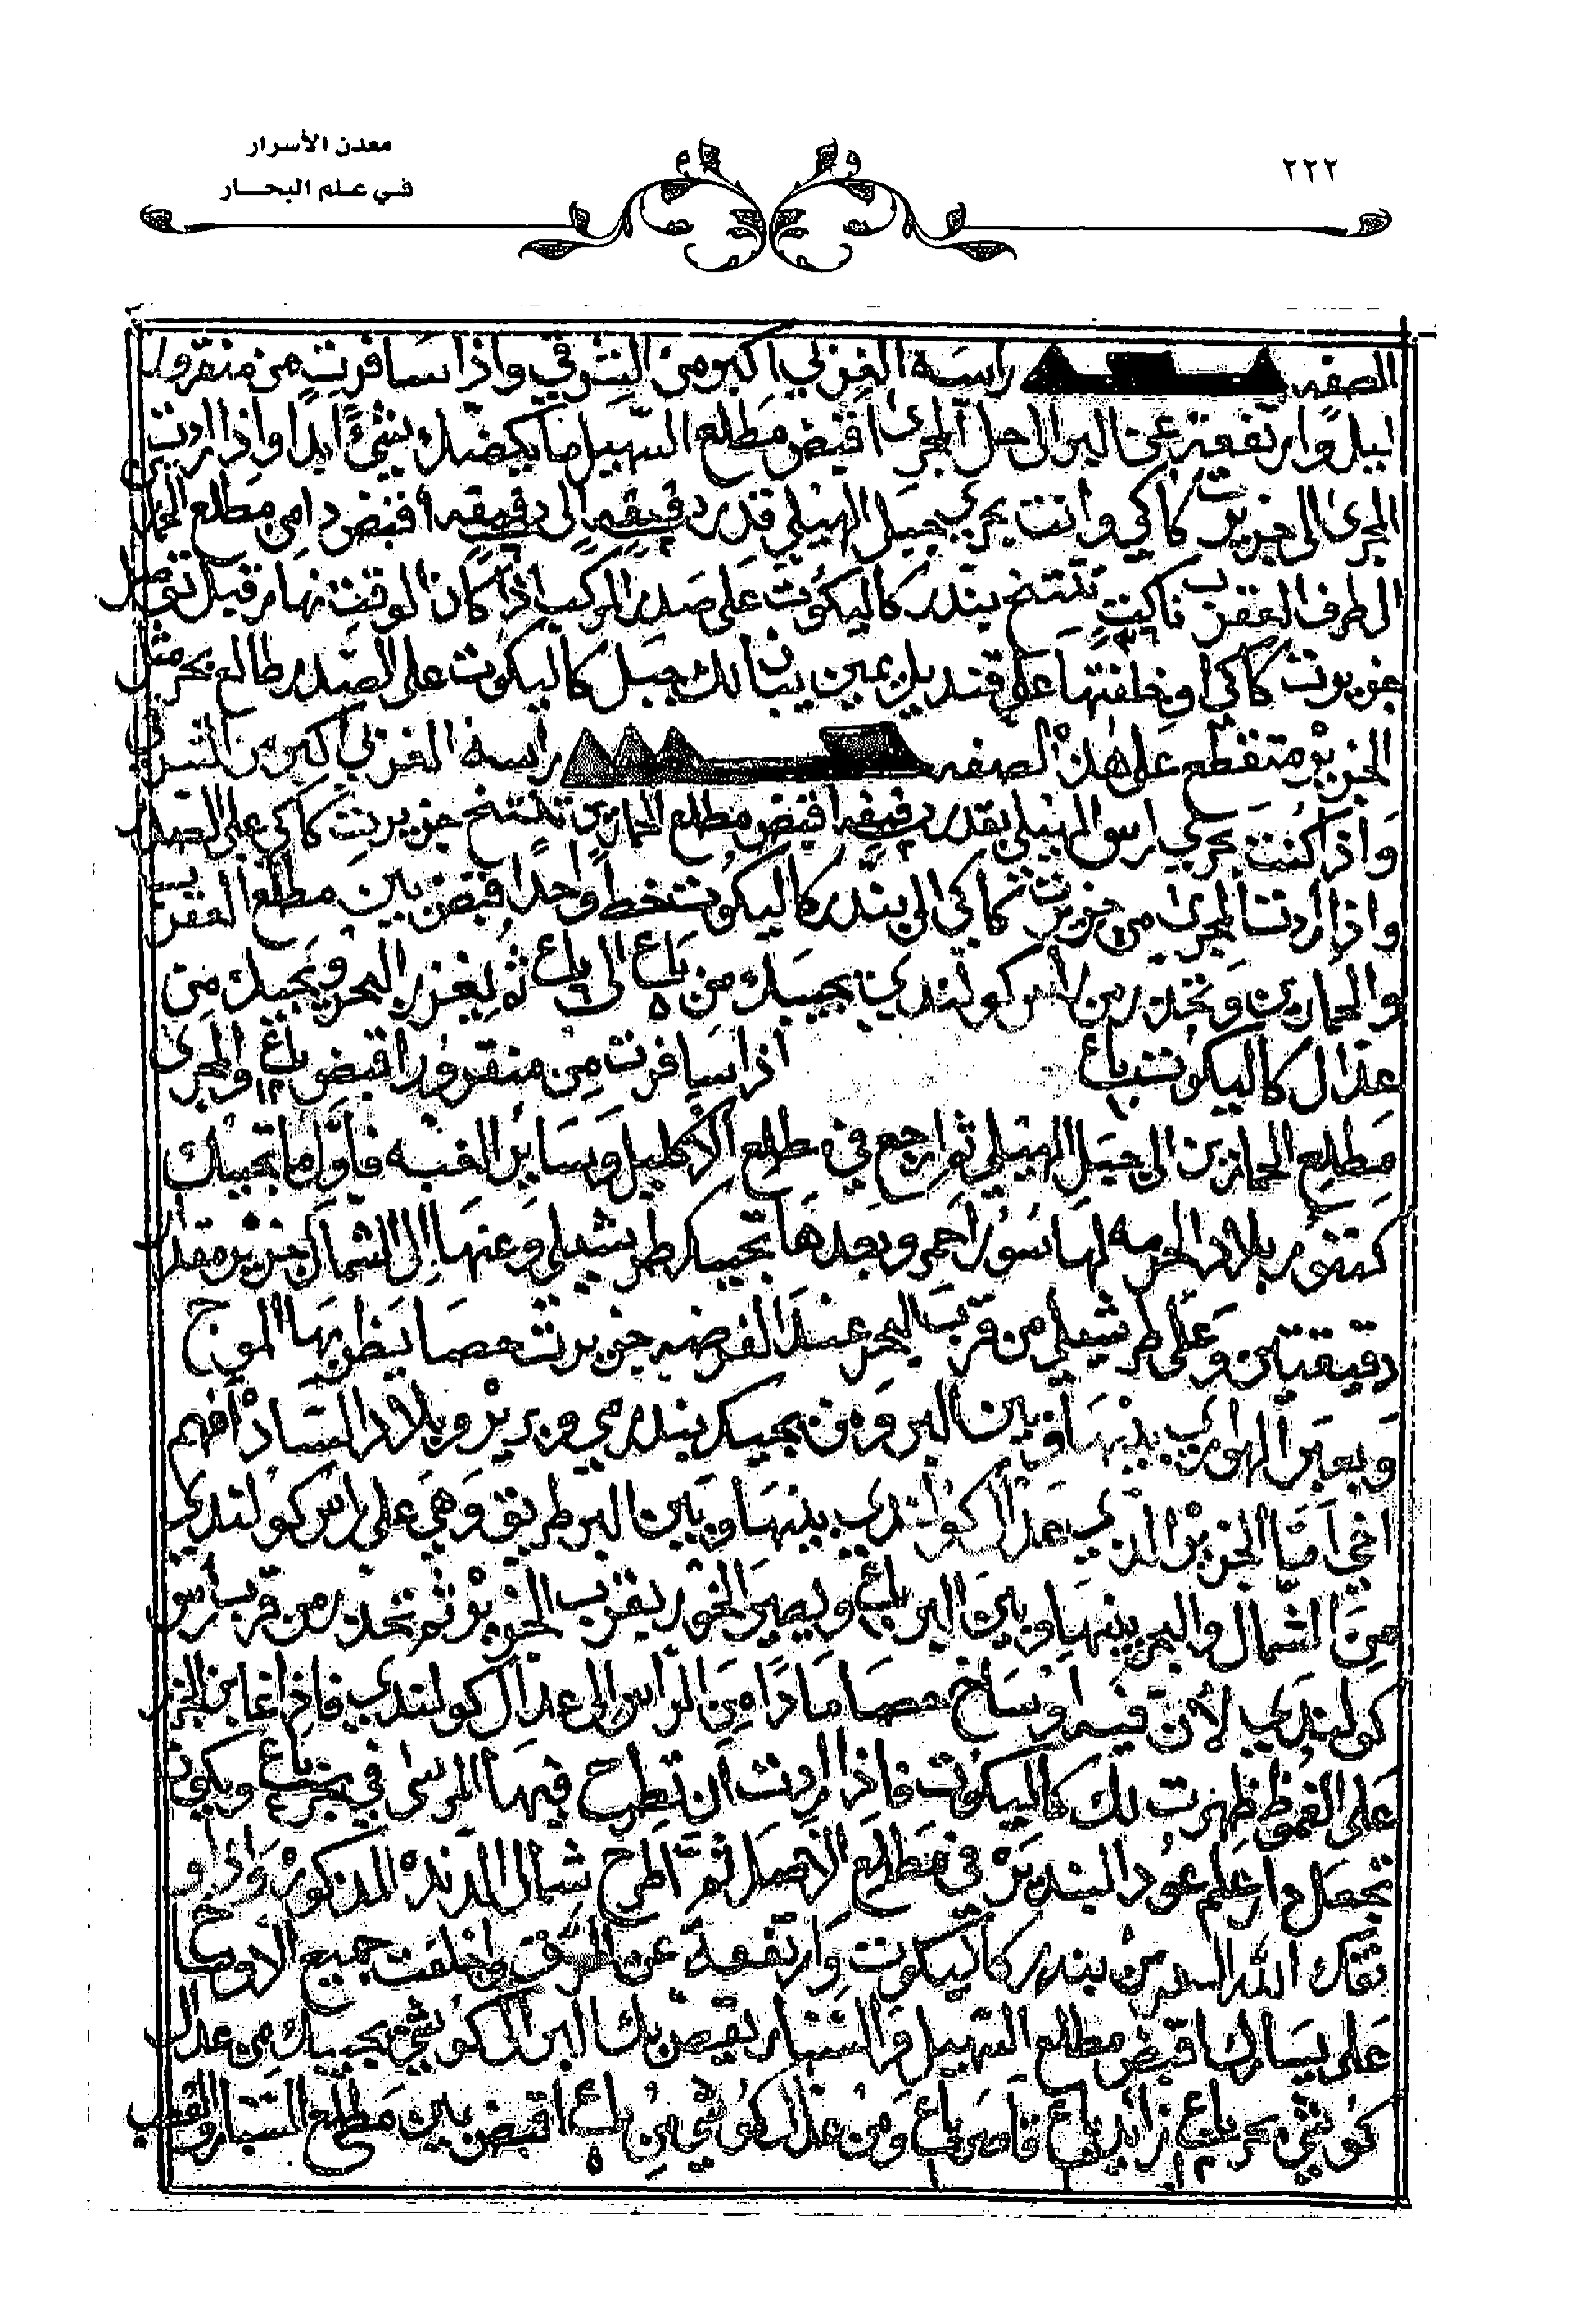 معدن الأسرار
في علم البحار
٢٢٢
الصفه راسه الغربي اكبر من الشرقي واذا سافرت من منقرور
ليلا وارتفعة عن البر الى حل المجرى اقبض مطلع السهيل ما يضلك بشيء ابدا واذا اردت
المجرى الى جزيرت كاكي وانت بحري جبل الهيلي قدر دقيقه الى دقيقه اقبض دامي مطلع الحمارين
الطرف العقرب ناكيت تنتخ بندر كاليكوت على صدر المركب اذا كان الوقت نهار قبل توصل
جزيرت كاكي وخلفتها على قنديل يمين يبان لك جبل كاليكوت على الصدر طالع بحر مثل
الجزيره متقطع على هذه الصفه راسه الغربي اكبر من الشرقي
واذا كنت بحري راس الهيلي بقدر دقيقه اقبض مطلع الحمارين تنتخ جزيرت كاكي على الصدر
واذا اردت المجرى من جزيرت كاكي الى بندر كاليكوت خط واحد اقبض بين مطلع العقرب
والحمارين وتحذر من راس كولندي يجيبك من باع ٥ الى باع ٦ ثم يغزر البحر ويجيبك من
عدال كاليكوت باع ١٠ اذا سافرت من منقرور اقبض باع ١٢ والمجرى
مطلع الحمارين الى جبل الهيلي ثم ارجع في مطلع الاكليل وساير الغبه فاول ما تجيك
كننور بلاد الحرمه لها سور احمر وبعدها تجيك طرشيلي وعنها الى الشمال جزيره مقدار
دقيقتين وعلى طرشيلي من قرب البحر عند الفرضه جزيرت حصا يظربها الموج
ويعبر الهوري بينها وبين البر ومن يجيك بندرمي وبربره وبلاد الساده افهم
اخي اما الجزيره الذي عدال كولندي بينها وبين البر طريق وهي على راس كولندي
من الشمال والبحر بينها وبين البر باع ويصير الخور بقرب الجزيره ثم تحذر من قرب راس
كولندي لان فيه اوساخ حصا مادا من الراس الى عدال كولندي فاذا غابة الجزيره
على الفموظ ظهرت لك كاليكوت فاذا اردت ان تطرح فيها المرسى في بحر باع ٤ ويكون
تجعل دار علم عود البنديره في مطلع الاصل ثم اطرح شمال الدنده المذكوره واذا و
فقك الله السفر من بندر كاليكوت وارتفعة عن الرق واخلفت جميع الاوساخ
على يسارك اقبض مطلع السهيل والسنبار يقيض بك البر الى كوشي يجيبك من عدال
كوشي بحر باع ١٢ زايد باع ١ قاصر باع ١ ومن عدال كوشي من باع ٥ اقبض بين مطلع السنبار والقطب